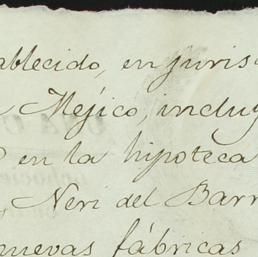 ablecido, en juris
Mejico, incluy
en la hipoteca
, Neri del Barr
nuevas fábricas